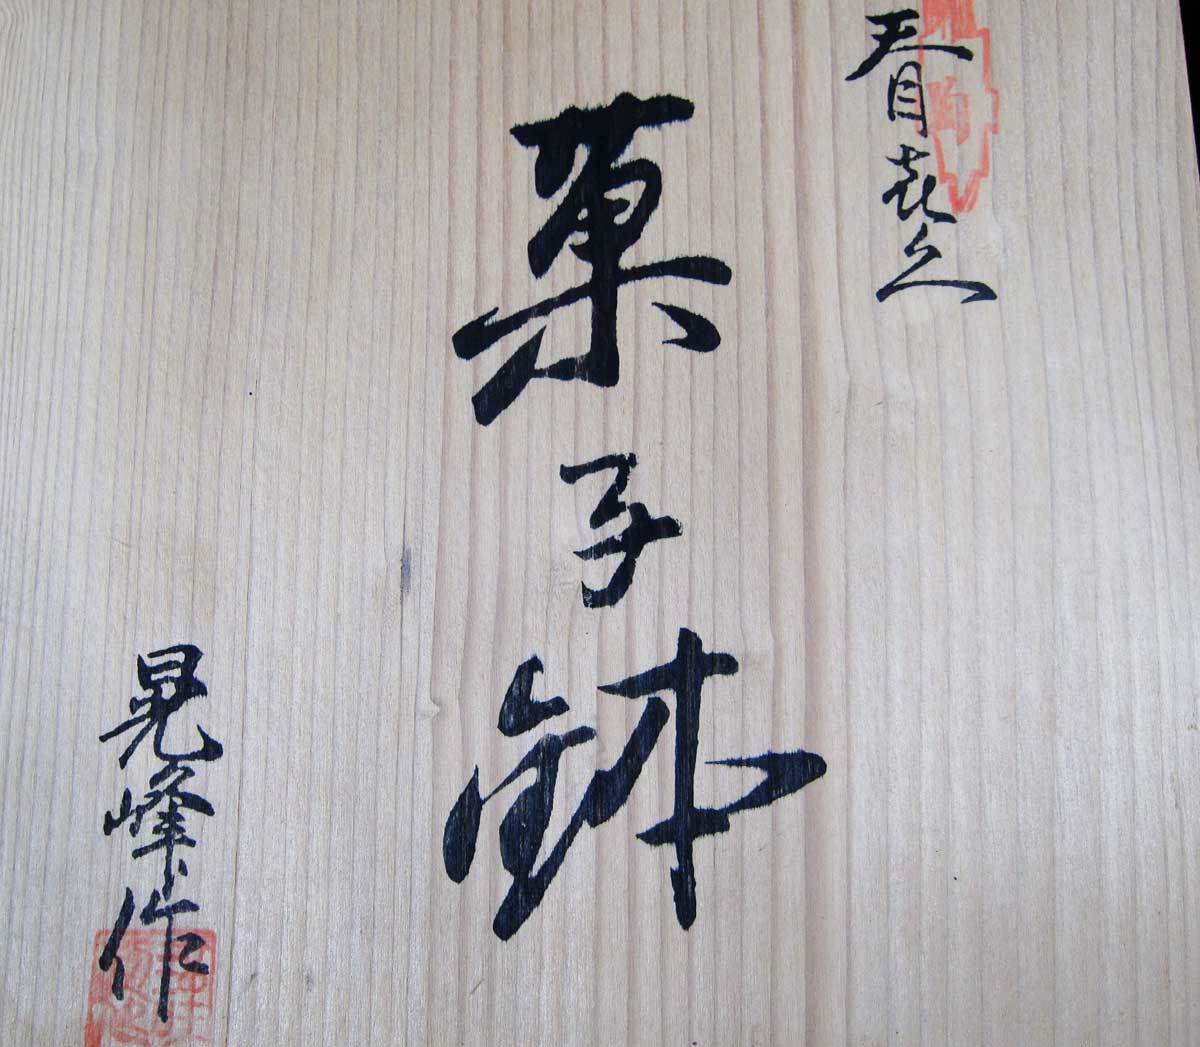 天目喜久
菓子鉢
晃峰作